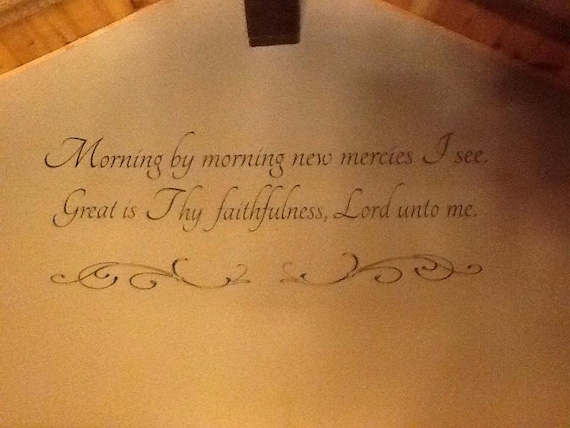 Morning by morning new mercies I see.
Great is Thy faithfulness, Lord unto me.